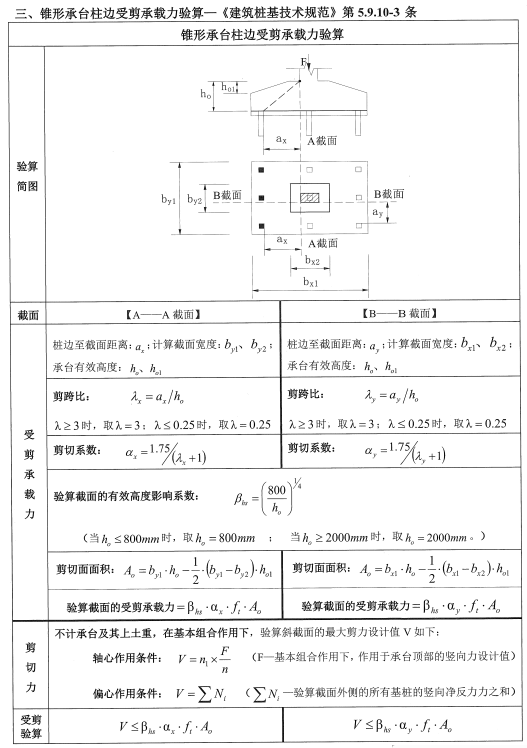 三、锥形承台柱边受剪承载力验算—《建筑桩基技术规范》第 5.9.10-3 条
锥形承台柱边受剪承载力验算
验算简图
F
h₀ h₀₁
aₓ A截面
b_y1 b_y2 B截面 B截面
a_y
aₓ A截面
b_x2
b_x1
截面 【A——A 截面】 【B——B 截面】
受剪承载力
桩边至截面距离：aₓ；计算截面宽度：b_y1、b_y2；
承台有效高度：h_o、h_o1
桩边至截面距离：a_y；计算截面宽度：b_x1、b_x2；
承台有效高度：h_o、h_o1
剪跨比： λ_x = a_x/h_o
λ≥3时，取λ=3；λ≤0.25时，取λ=0.25
剪跨比： λ_y = a_y/h_o
λ≥3时，取λ=3；λ≤0.25时，取λ=0.25
剪切系数： α_x = 1.75/(λ_x+1)
剪切系数： α_y = 1.75/(λ_y+1)
验算截面的有效高度影响系数： β_hs = (800/h_o)^¼
（当h_o≤800mm时，取h_o=800mm ； 当h_o≥2000mm时，取h_o=2000mm。）
剪切面面积：A_o = b_y1·h_o − 1/2·(b_y1−b_y2)·h_o1
剪切面面积：A_o = b_x1·h_o − 1/2·(b_x1−b_x2)·h_o1
验算截面的受剪承载力=β_hs·α_x·f_t·A_o
验算截面的受剪承载力=β_hs·α_y·f_t·A_o
剪切力
不计承台及其上土重，在基本组合作用下，验算斜截面的最大剪力设计值 V 如下；
轴心作用条件： V = n₁×F/n （F—基本组合作用下，作用于承台顶部的竖向力设计值）
偏心作用条件： V = ∑N_i （∑N_i—验算截面外侧的所有基桩的竖向净反力力之和）
受剪验算 V≤β_hs·α_x·f_t·A_o V≤β_hs·α_y·f_t·A_o